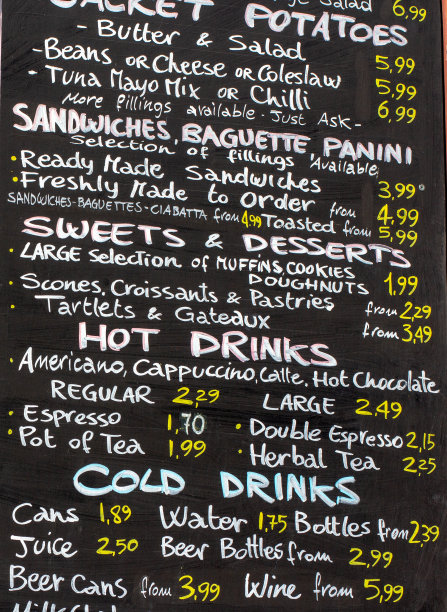 Salad 6,99
JACKET POTATOES
- Butter & Salad 5,99
- Beans OR Cheese OR Coleslaw 5,99
- Tuna Mayo Mix OR Chilli 6,99
More fillings available. Just Ask -
SANDWICHES, BAGUETTE PANINI
Selection of fillings Available
• Ready Made Sandwiches 3,99
• Freshly Made to Order from 4,99
SANDWICHES-BAGUETTES-CIABATTA from 4,99 Toasted from 5,99
SWEETS & DESSERTS
• LARGE Selection of MUFFINS, COOKIES
DOUGHNUTS 1,99
• Scones, Croissants & Pastries from 2,29
• Tartlets & Gateaux from 3,49
HOT DRINKS
• Americano, Cappuccino, Latte, Hot Chocolate
REGULAR 2,29 LARGE 2,49
• Espresso 1,70 • Double Espresso 2,15
• Pot of Tea 1,99 • Herbal Tea 2,25
COLD DRINKS
Cans 1,89 Water 1,75 Bottles from 2,39
Juice 2,50 Beer Bottles from 2,99
Beer Cans from 3,99 Wine from 5,99